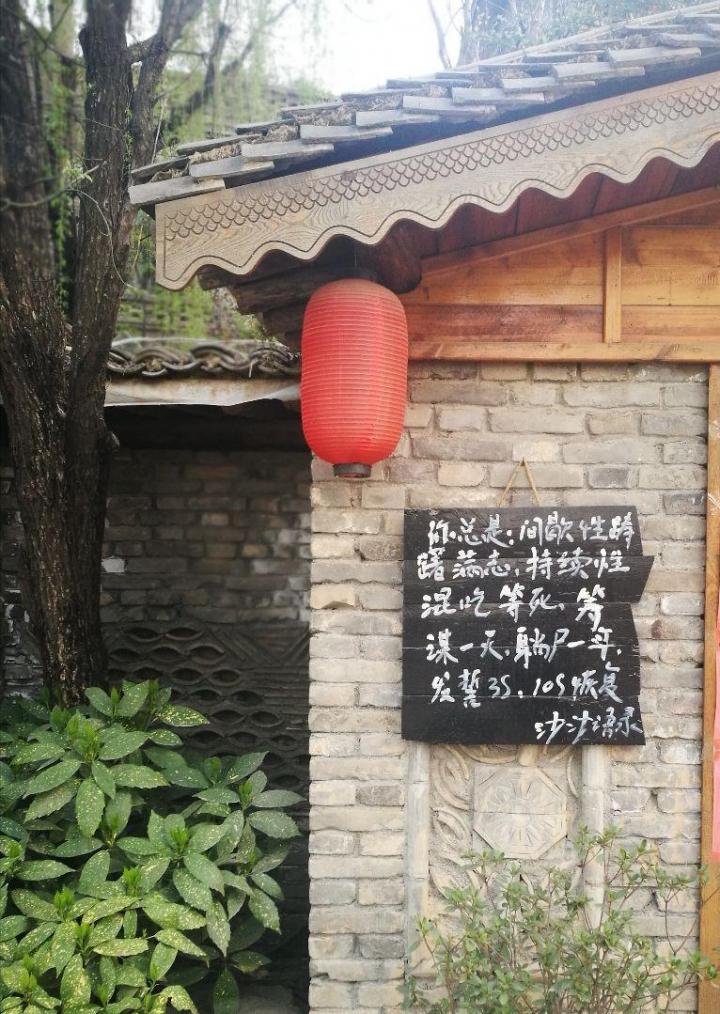 你总是:间歇性踌
躇满志,持续性
混吃等死,筹
谋一天,躺尸一年,
发誓3S,10S恢复
沙沙语录